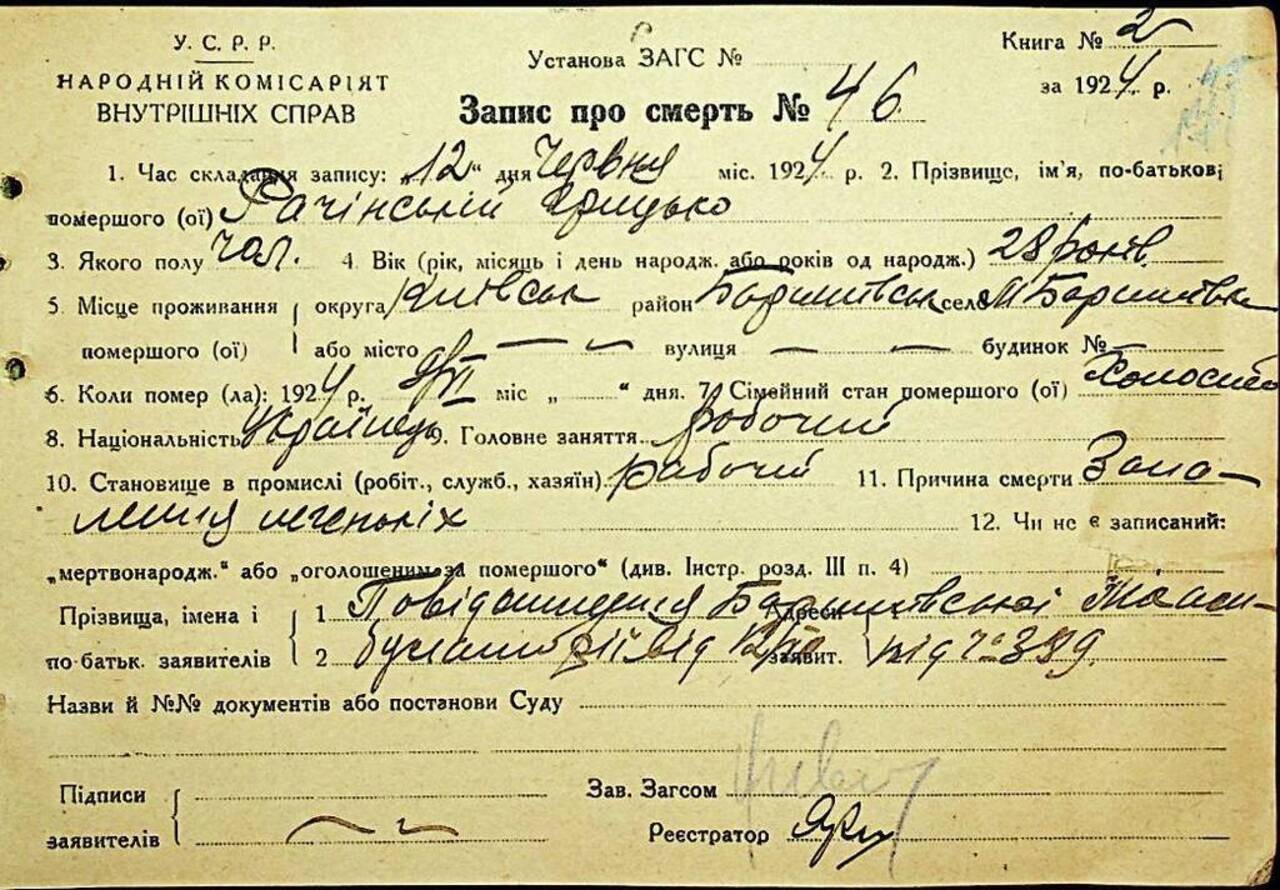 У. С. Р. Р.
НАРОДНІЙ КОМІСАРІЯТ
ВНУТРІШНІХ СПРАВ
Установа ЗАГС №
Книга № 2
за 1924 р.
Запис про смерть № 46
1. Час складання запису: „12“ дня Червня міс. 1924 р. 2. Прізвище, ім'я, по-батькові
помершого (ої) Рачінський Грицько
3. Якого полу чол. 4. Вік (рік, місяць і день народж. або років од народж.) 28 років
5. Місце проживання округа Київськ район Баришівськ село М Баришівка
помершого (ої) або місто вулиця будинок №
6. Коли помер (ла): 1924 р. міс „ “ дня. 7. Сімейний стан помершого (ої) Холостий
8. Національність Українець 9. Головне заняття робочий
10. Становище в промислі (робіт., служб., хазяїн) рабочий 11. Причина смерти Запа-
лення легеньких 12. Чи не є записаний:
„мертвонародж.“ або „оголошеним за помершого“ (див. Інстр. розд. III п. 4)
Прізвища, імена і 1 Повідомлення Баришівської Адреси 1
по батьк. заявителів 2 від заявит. під № 389
Назви й №№ документів або постанови Суду
Підписи
заявителів
Зав. Загсом
Реєстратор